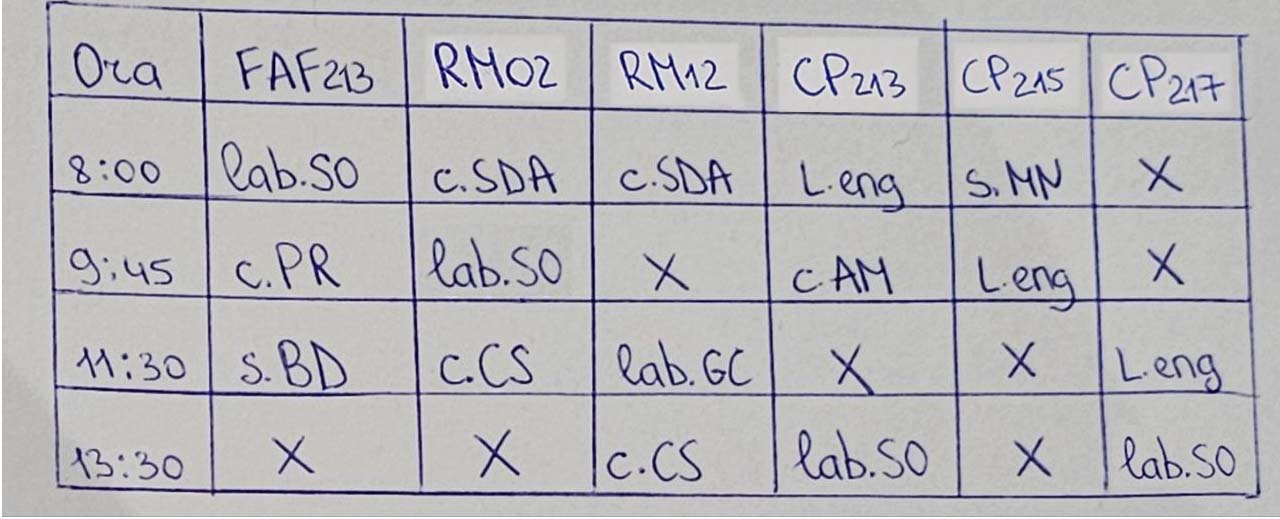 Ora FAF213 RM02 RM12 CP213 CP215 CP217
8:00 lab.SO c.SDA c.SDA L.eng s.MN X
9:45 c.PR lab.SO X c.AM L.eng X
11:30 s.BD c.CS lab.GC X X L.eng
13:30 X X c.CS lab.SO X lab.SO